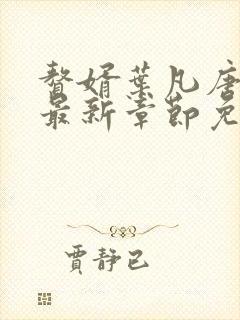 赘婿叶凡唐
最新章节免
贾静已